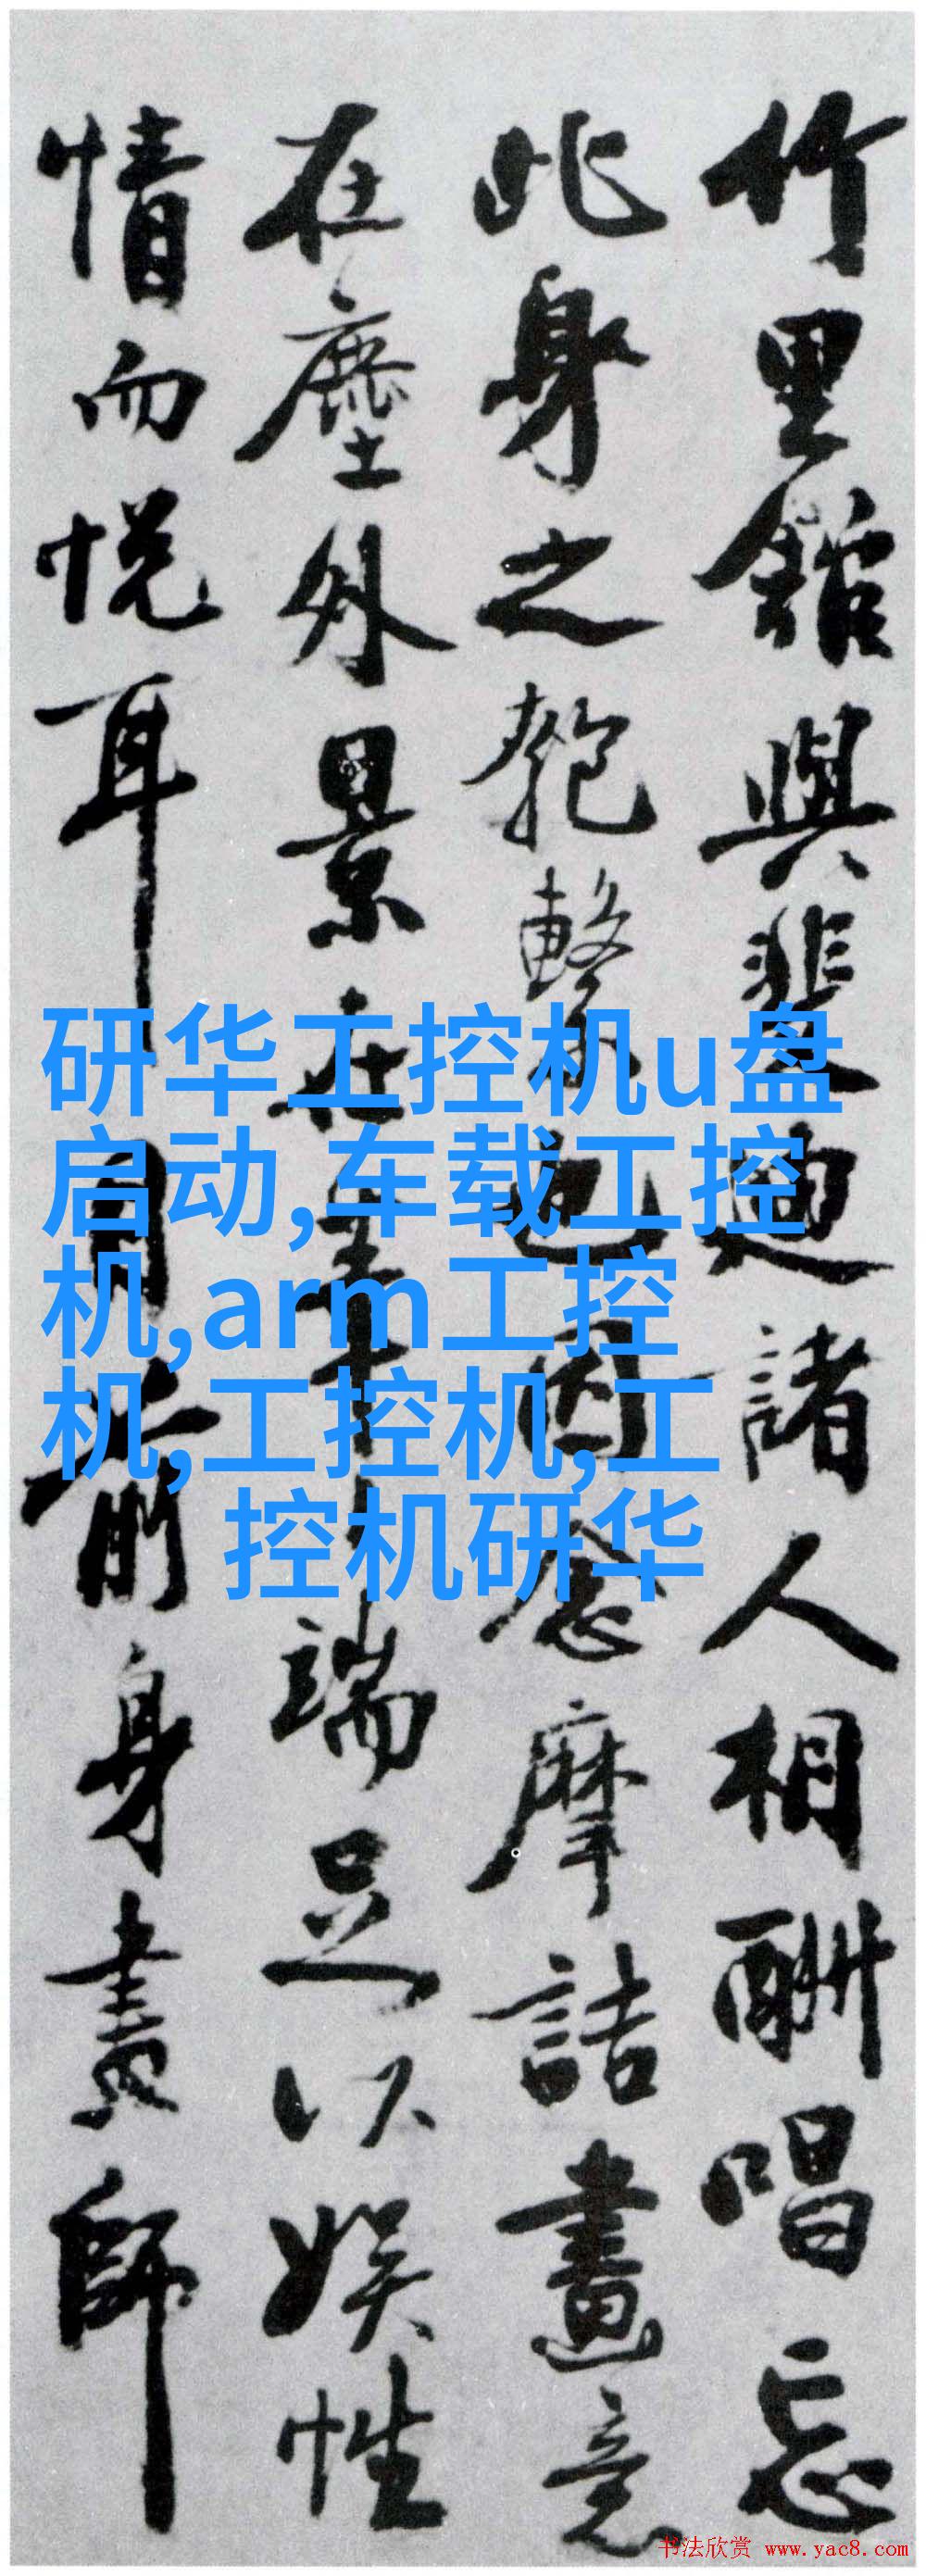 竹里館與裴迪諸人相酬唱忘
此身之匏繫也因念摩詰畫意
在塵外景在筆端足以娱性
情而悦耳目前身畫師
研华工控机u盘
启动,车载工控
机,arm工控
机,工控机,工
控机研华
书法欣赏 www.yac8.com